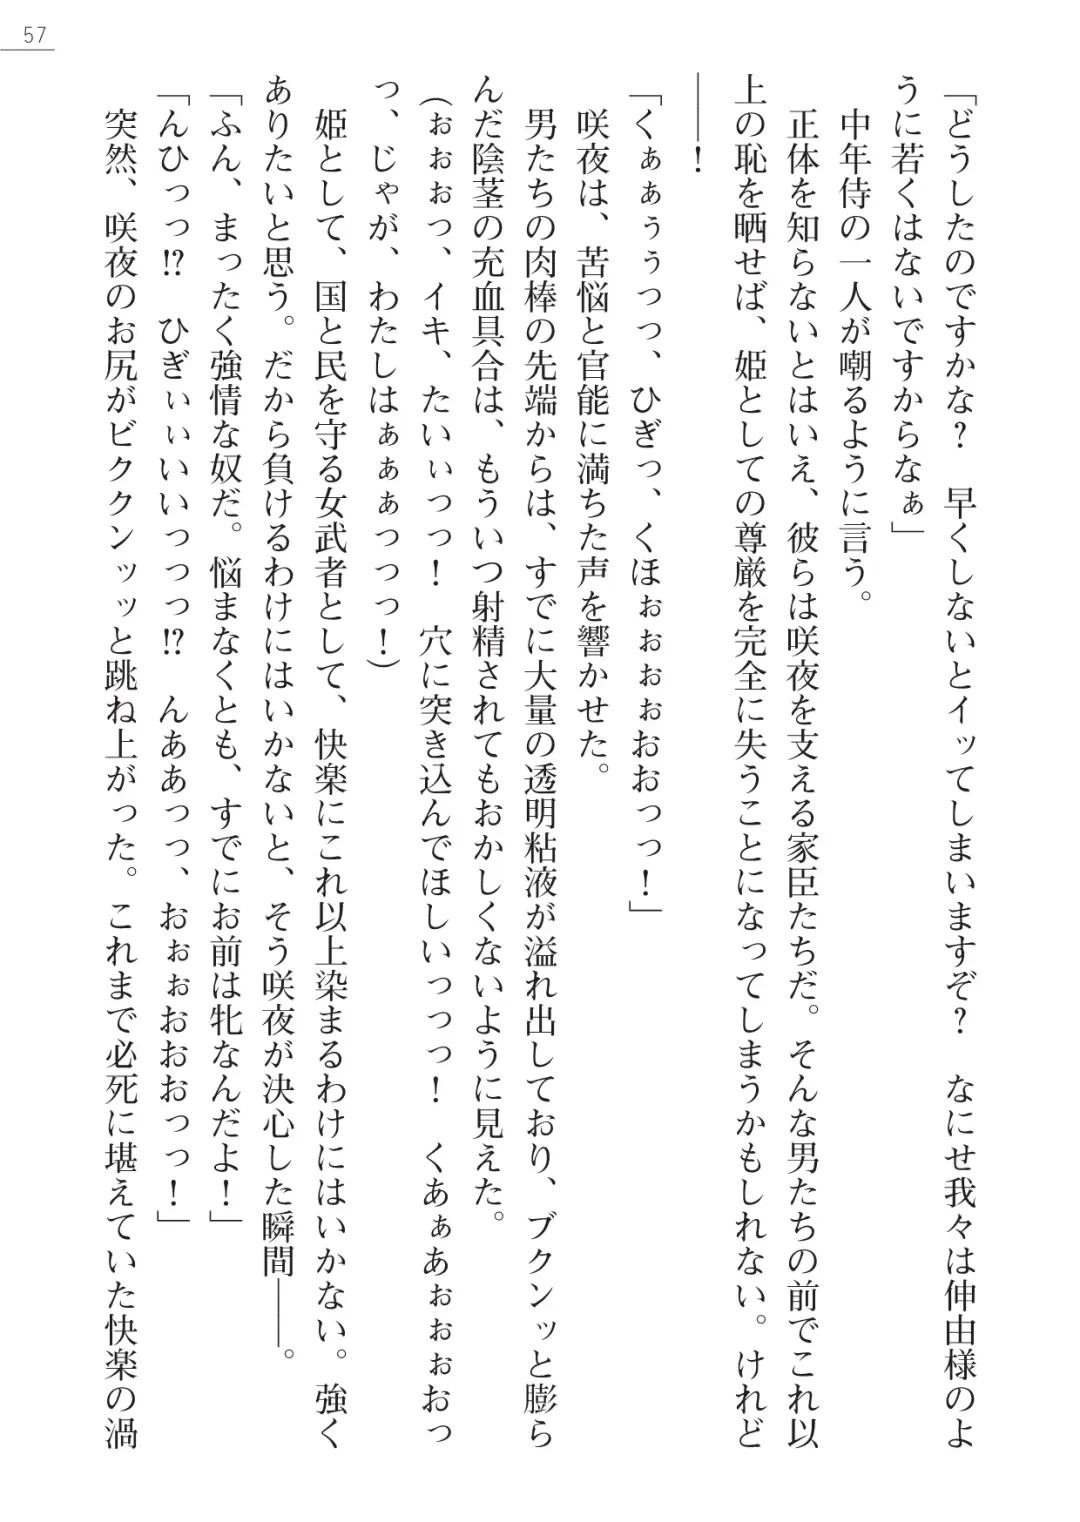 57
「どうしたのですかな？　早くしないとイッてしまいますぞ？　なにせ我々は伸由様のよ
うに若くはないですからなぁ」
中年侍の一人が嘲るように言う。
正体を知らないとはいえ、彼らは咲夜を支える家臣たちだ。そんな男たちの前でこれ以
上の恥を晒せば、姫としての尊厳を完全に失うことになってしまうかもしれない。けれど
――！
「くぁぁぅぅっっ、ひぎっ、くほぉぉぉぉおおっっ！」
咲夜は、苦悩と官能に満ちた声を響かせた。
男たちの肉棒の先端からは、すでに大量の透明粘液が溢れ出しており、ブクンッと膨ら
んだ陰茎の充血具合は、もういつ射精されてもおかしくないように見えた。
（ぉぉぉっ、イキ、たいぃっっ！　穴に突き込んでほしいっっっ！　くあぁあぉぉぉおっ
っ、じゃが、わたしはぁぁぁっっっ！）
姫として、国と民を守る女武者として、快楽にこれ以上染まるわけにはいかない。強く
ありたいと思う。だから負けるわけにはいかないと、そう咲夜が決心した瞬間――。
「ふん、まったく強情な奴だ。悩まなくとも、すでにお前は牝なんだよ！」
「んひっっ!?　ひぎぃぃいいっっっ!?　んああっっ、おぉぉおおおっっ！」
突然、咲夜のお尻がビククンッッと跳ね上がった。これまで必死に堪えていた快楽の渦